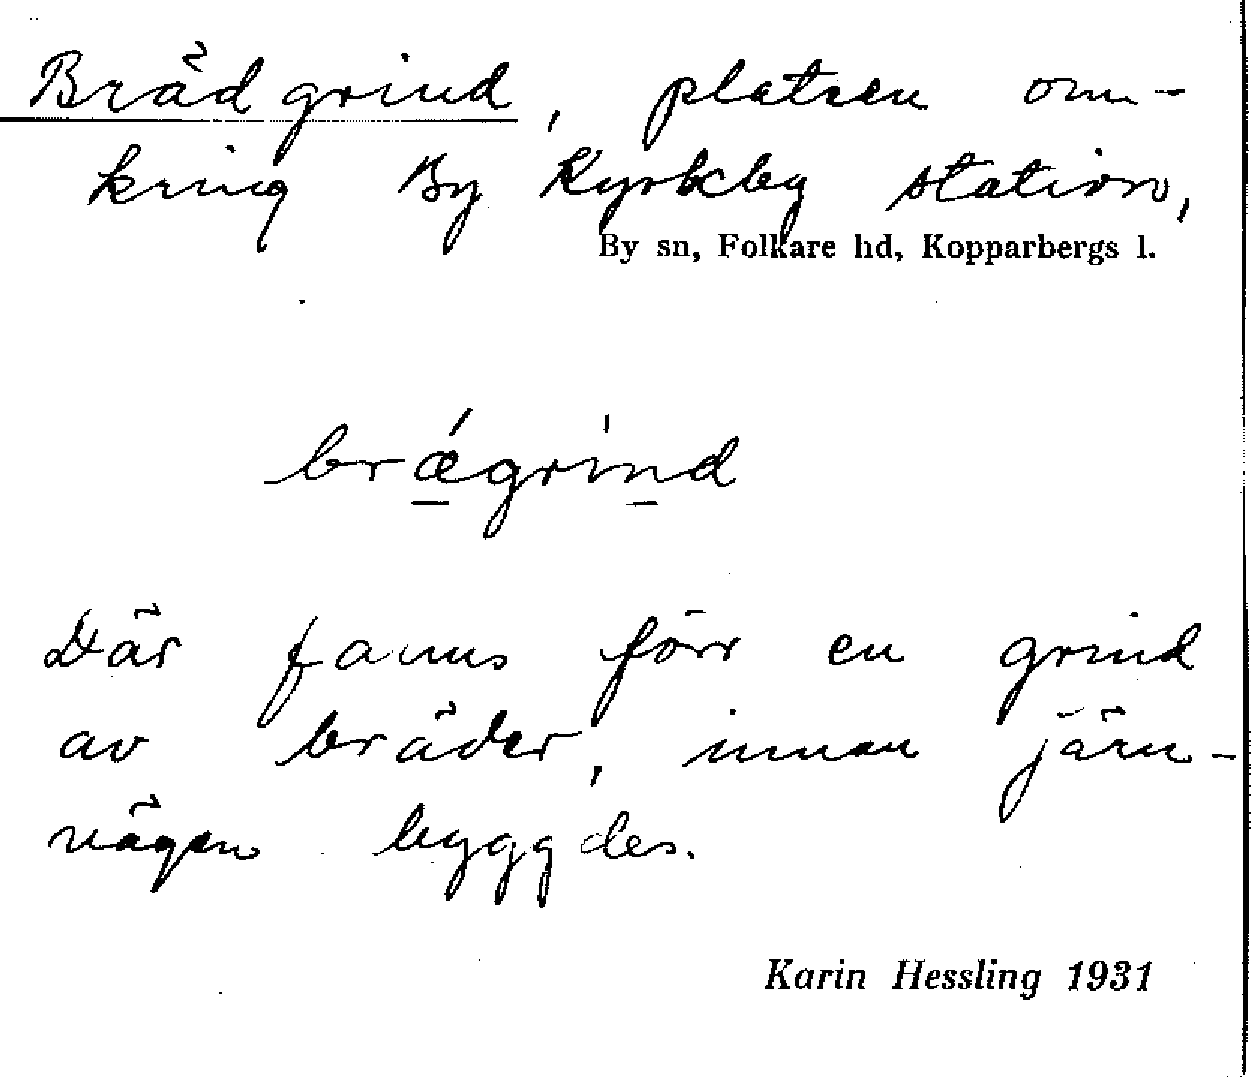 Brädgrind, platsen om-
kring By Kyrkby station,
By sn, Folkare hd, Kopparbergs l.
brǽgrind
Där fanns förr en grind
av bräder, innan järn-
vägen byggdes.
Karin Hessling 1931